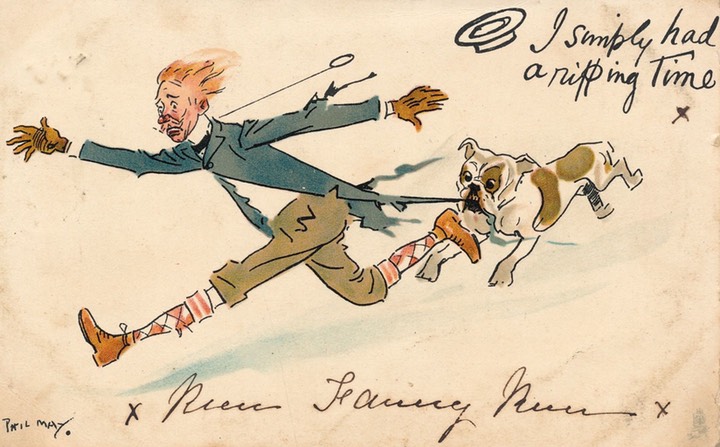 I simply had
a ripping Time
x
x Run Fanny Run x
PHIL MAY.